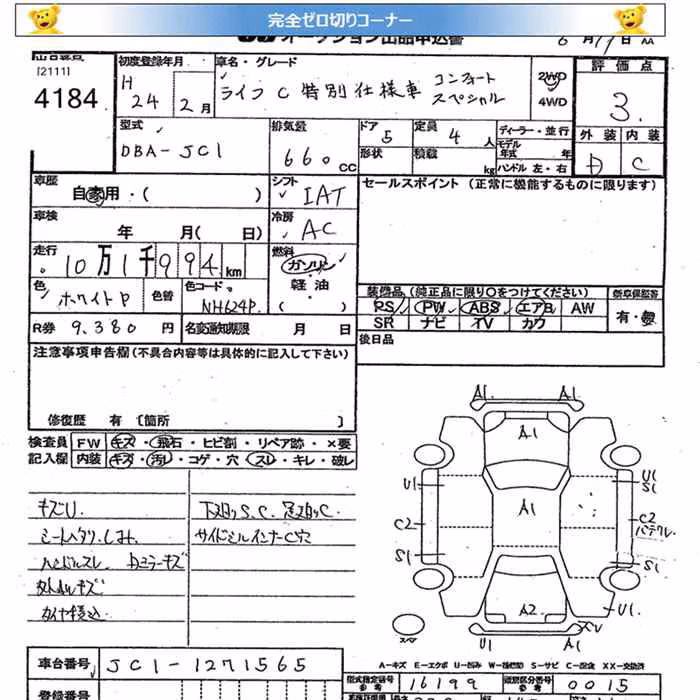 完全ゼロ切りコーナー
オークション出品申込書 6月19日
[2111]
4184
初度登録年月
H 24 2月
車名・グレード
ライフ C 特別仕様車 コンフォートスペシャル
2WD
4WD
評価点
3.
外装 内装
D C
型式
DBA-JC1
排気量
660 CC
ドア 5
形状
定員 4 人
積載 kg
ディーラー・並行
モデル年式 年
ハンドル 左・右
車歴
自家用・( )
シフト
IAT
セールスポイント (正常に機能するものに限ります)
車検
年 月( 日)
冷房
AC
走行
10万1千994km
燃料
ガソリン
軽・油
( )
色
ホワイトP
色替
色コード
NH624P
装備品 (純正品に限り○をつけてください)
PS PW ABS エアB AW
SR ナビ TV カワ
新車保証書
有・無
R券 9,380 円
名変通知期限 月 日
後日品
注意事項申告欄 (不具合内容等は具体的に記入して下さい)
修復歴 有 〔箇所 〕
検査員 FW キズ・飛石・ヒビ割・リペア跡・×要
記入欄 内装 キズ・汚レ・コゲ・穴・スレ・キレ・破レ
キズU.
シートヘタリ.しみ.
ハンドルスレ. Dミラーキズ
タイヤ積込
下廻りS.C. 足廻りC
サイドシルインナーC穴
A1 A1
A1
U1 A1 U1 S1
C2 C2
S1 S1
A2 U1
U1 A1
スペア
A-キズ E-エクボ U-凹み W-補修跡 S-サビ C-腐食 XX-交換済
車台番号 JC1-1271565
型式指定番号 参考 16199
類別区分番号 参考 0015
登録番号